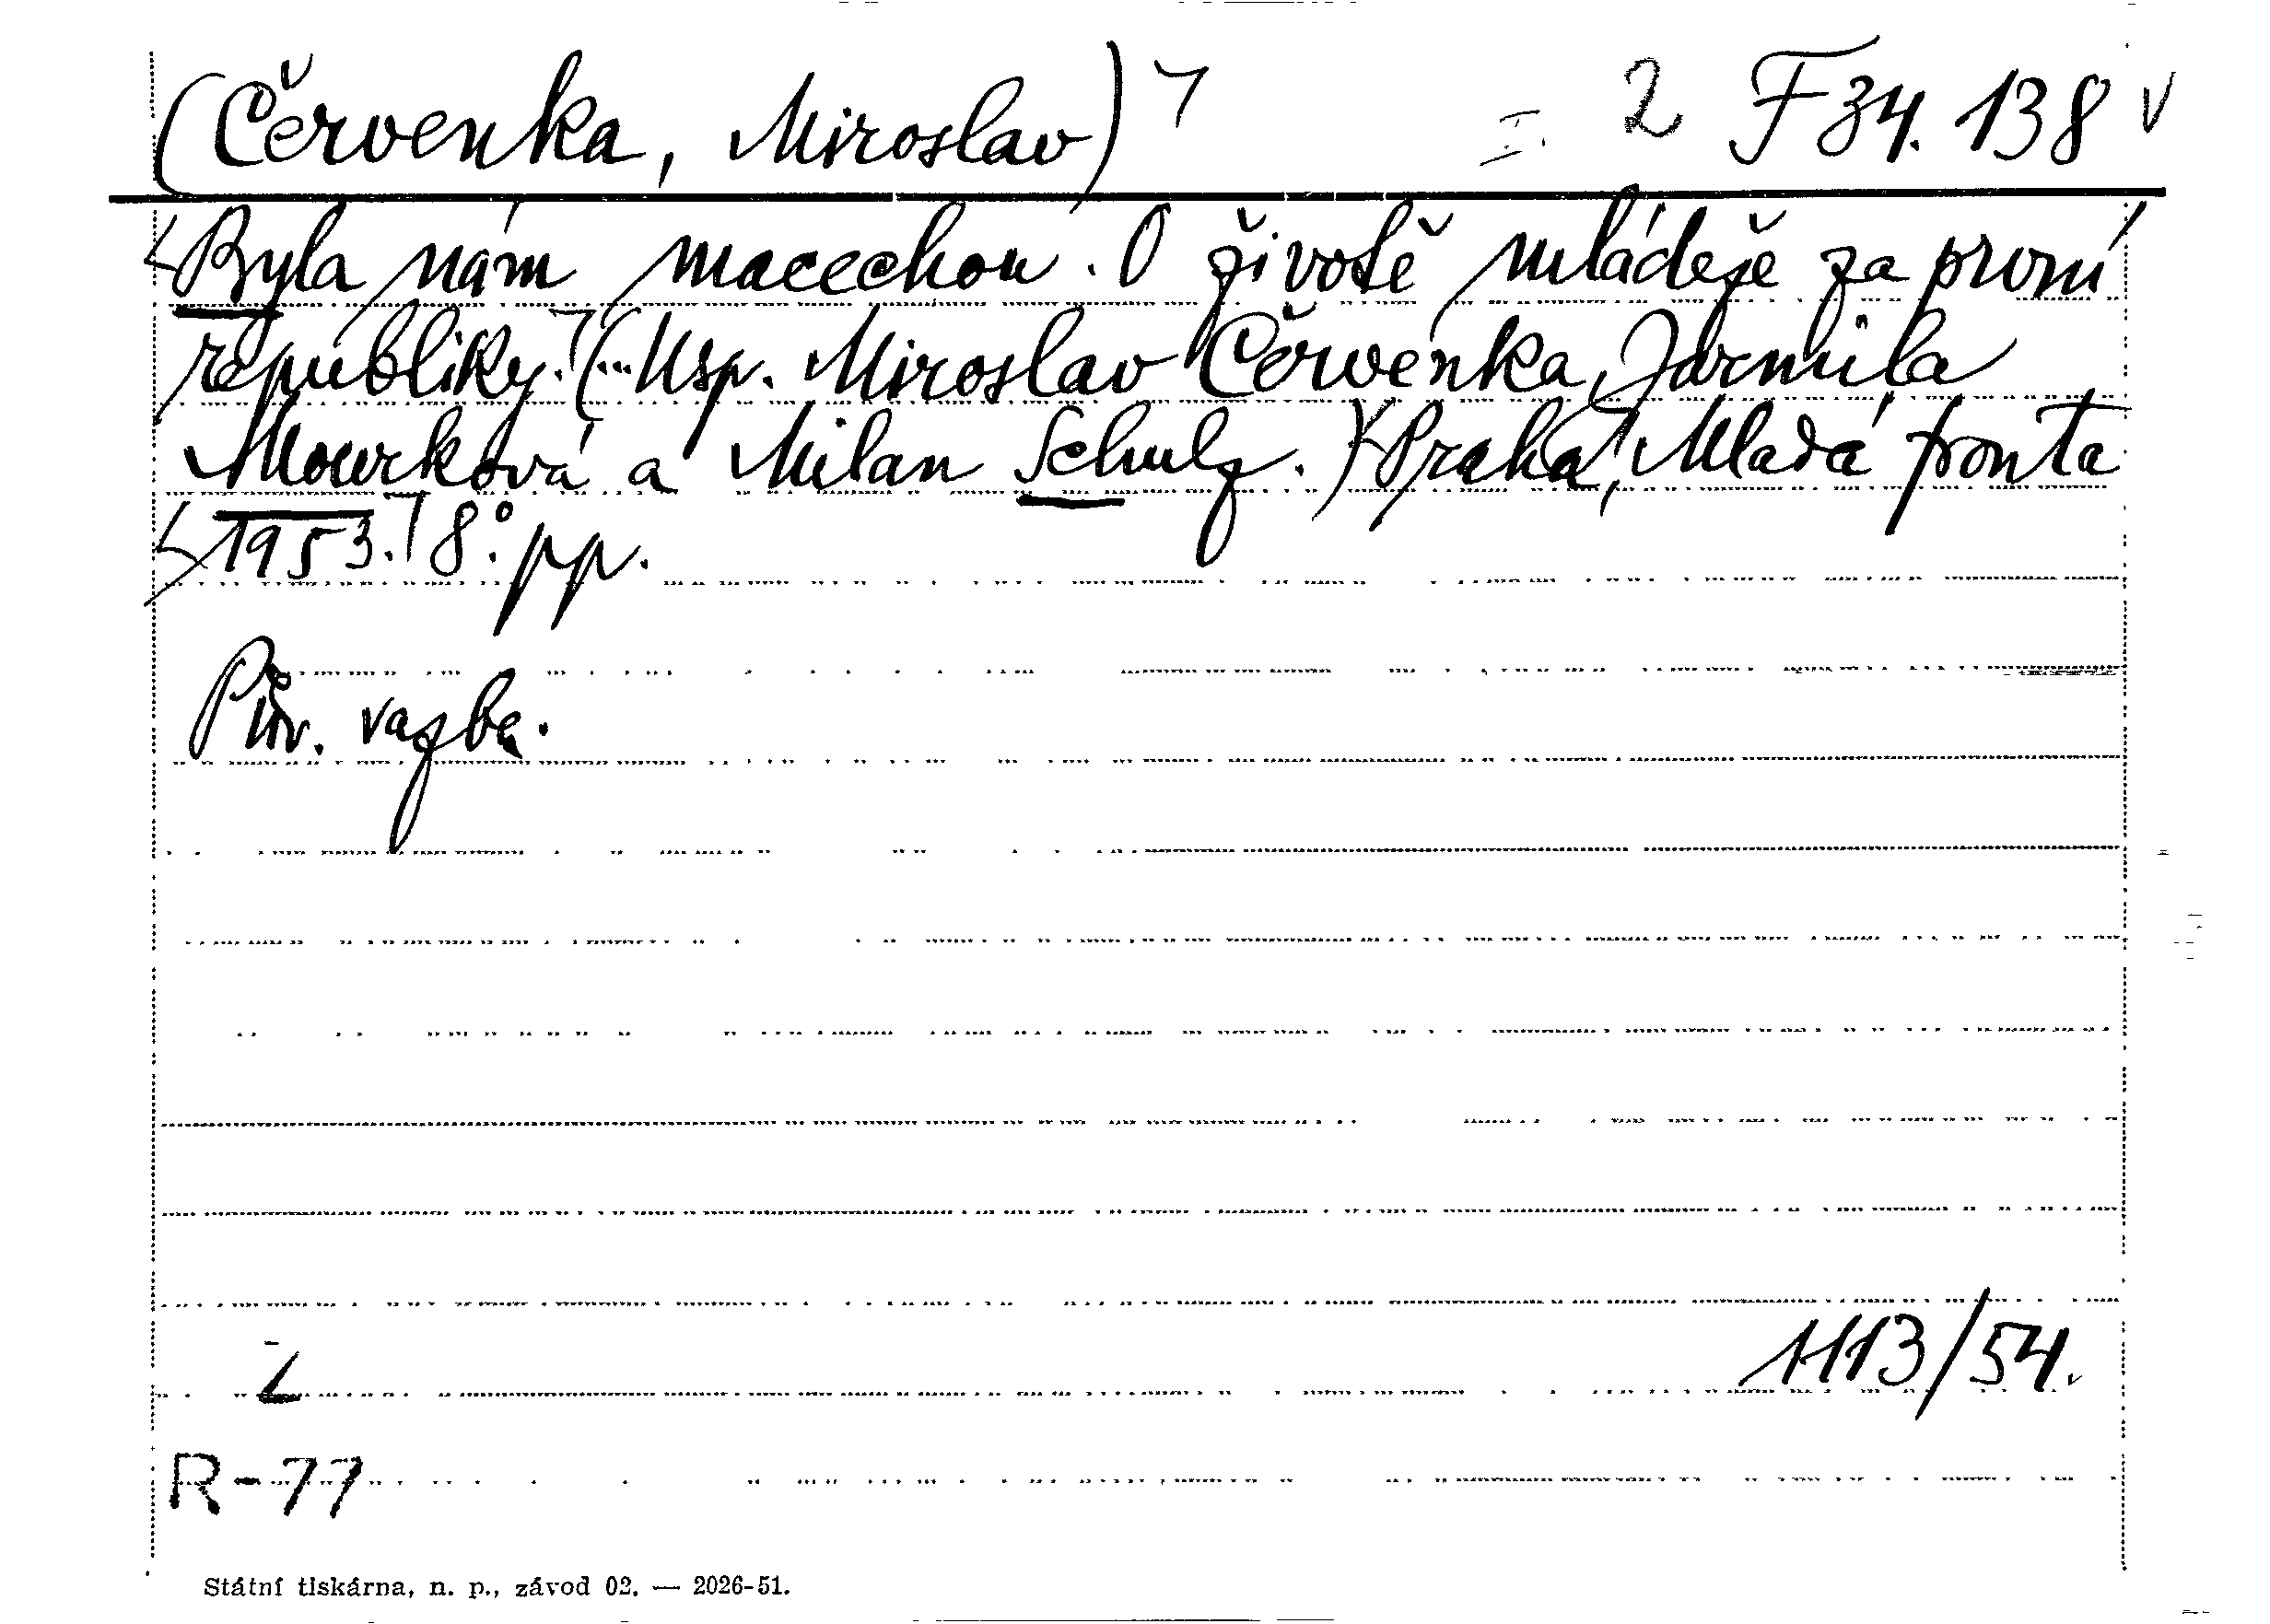 (Červenka, Miroslav) I. 2 F 34.138
Byla nám macechou. O životě mládeže za první
republiky. (...Usp. Miroslav Červenka, Jarmila
Mourková a Milan Schulz.) Praha, Mladá fronta
1953. 8°. pp.
Pův. vazba.
1113/54.
R-77
Státní tiskárna, n. p., závod 02. — 2026-51.